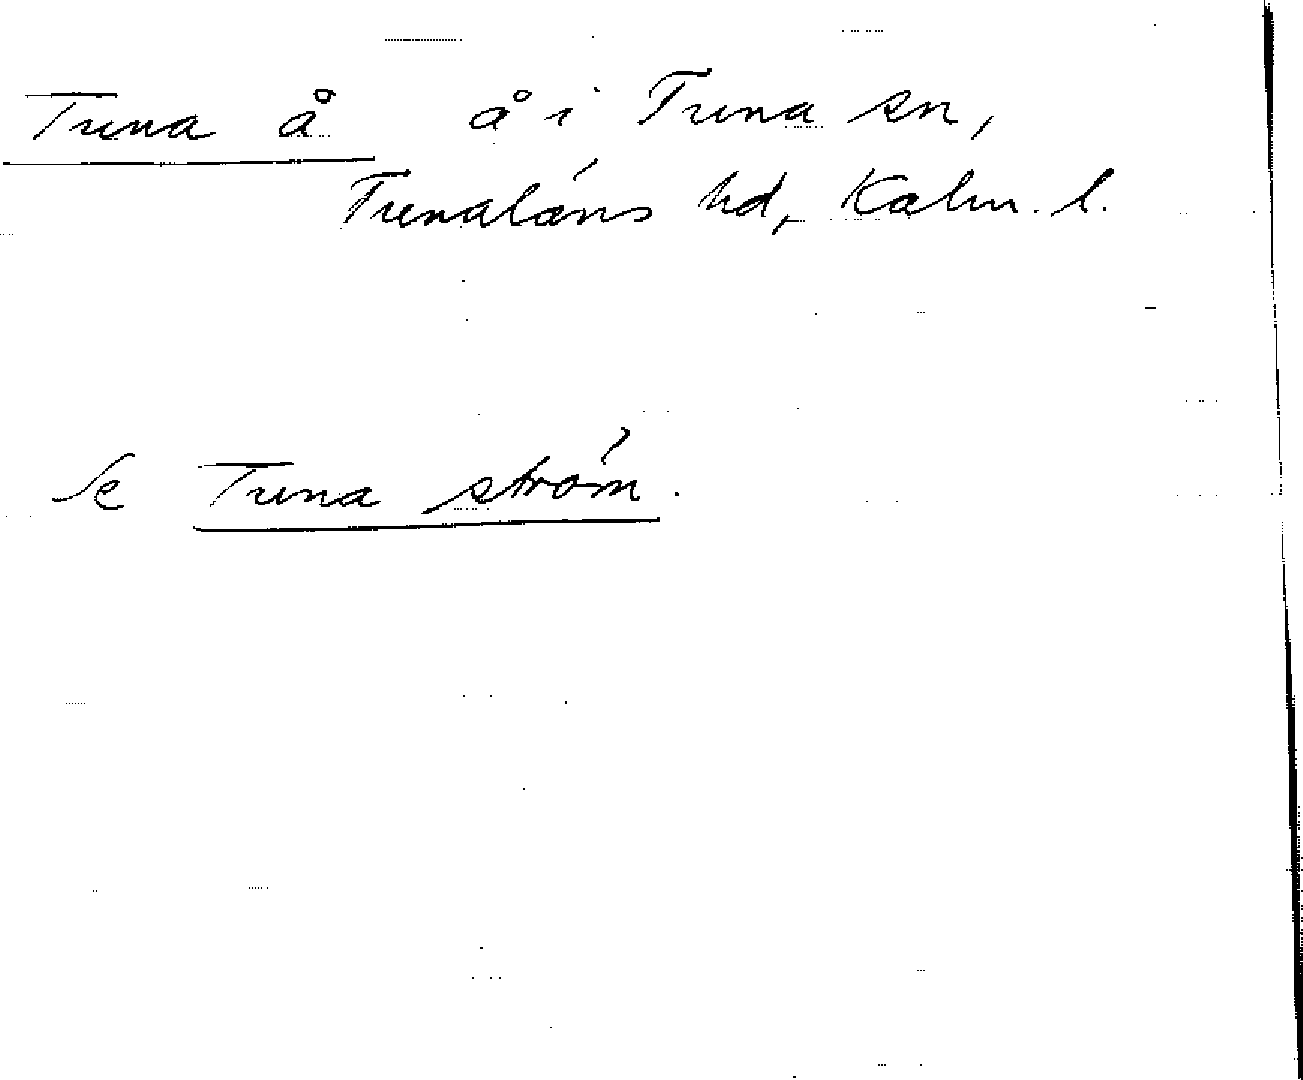 Tuna å å i Tuna sn,
Tunaläns hd, Kalm. l.
Se Tuna ström.